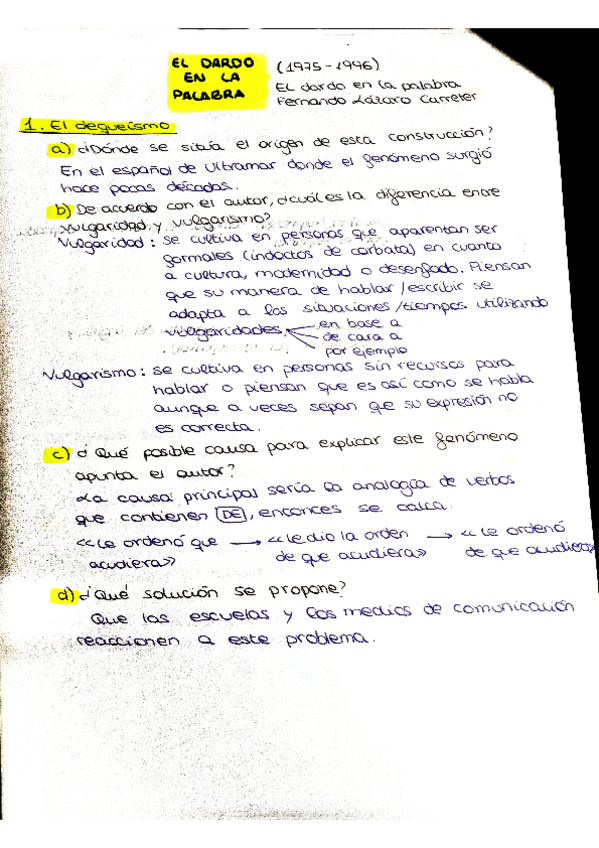 EL DARDO
EN LA
PALABRA
(1975-1996)
EL dardo en la palabra
Fernando Lázaro Carreter
1. El dequeísmo
a) ¿Dónde se sitúa el origen de esta construcción?
En el español de Ultramar donde el fenómeno surgió
hace pocas décadas.
b) De acuerdo con el autor, ¿cuál es la diferencia entre
vulgaridad y vulgarismo?
Vulgaridad: se cultiva en personas que aparentan ser
formales (indoctos de corbata) en cuanto
a cultura, modernidad o desenfado. Piensan
que su manera de hablar/escribir se
adapta a las situaciones/tiempos utilizando
vulgaridades.
en base a
de cara a
por ejemplo
Vulgarismo: se cultiva en personas sin recursos para
hablar o piensan que es así como se habla
aunque a veces sepan que su expresión no
es correcta.
c) ¿Qué posible causa para explicar este fenómeno
apunta el autor?
La causa principal sería la analogía de verbos
que contienen DE, entonces se calca.
«Le ordenó que acudiera» → «le dio la orden de que acudiera» → «Le ordenó de que acudiera»
d) ¿Qué solución se propone?
Que las escuelas y los medios de comunicación
reaccionen a este problema.